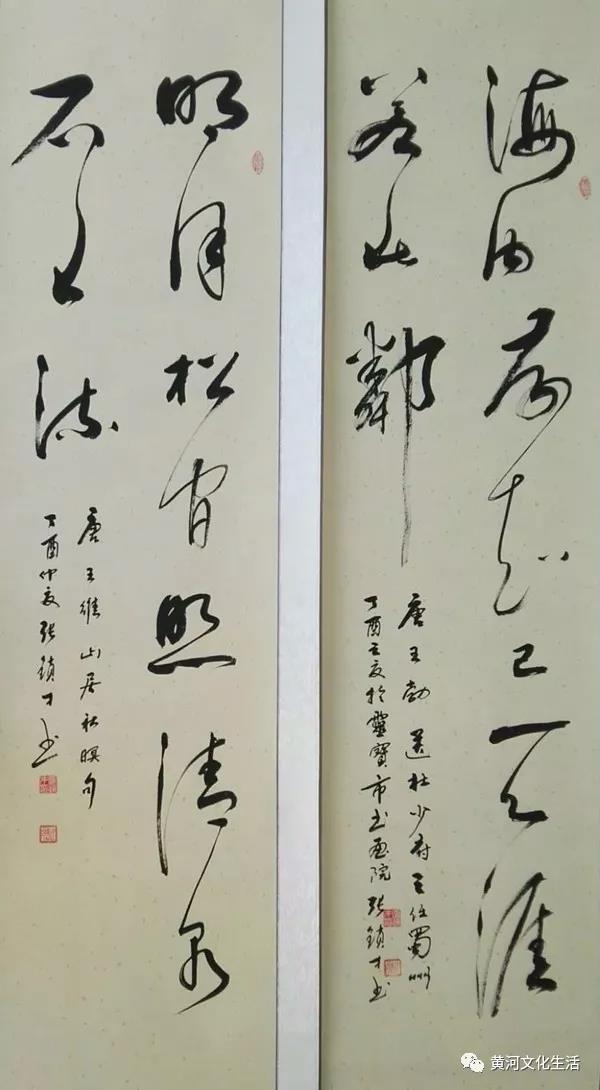 海内存知己天涯
若比鄰
唐王勃送杜少府之任蜀州
丁酉夏於靈寶市书画院张锁才书
明月松间照清泉
石上流
唐王维山居秋暝句
丁酉仲夏张锁才书
黄河文化生活